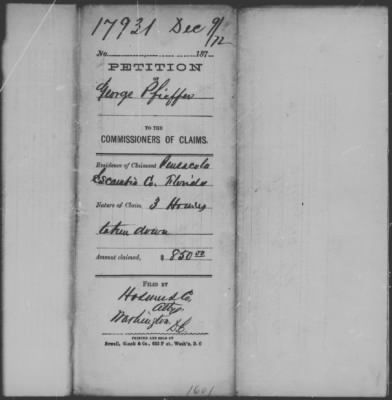 17931 Dec 9/72
No. 187
PETITION
George Pfieffer
TO THE
COMMISSIONERS OF CLAIMS.
Residence of Claimant Pensacola
Escambia Co. Florida
Nature of Claim, 3 Houses
taken down
Amount claimed, $ 850.00
FILED BY
Attys.
Washington
D.C.
PRINTED AND SOLD BY
1601